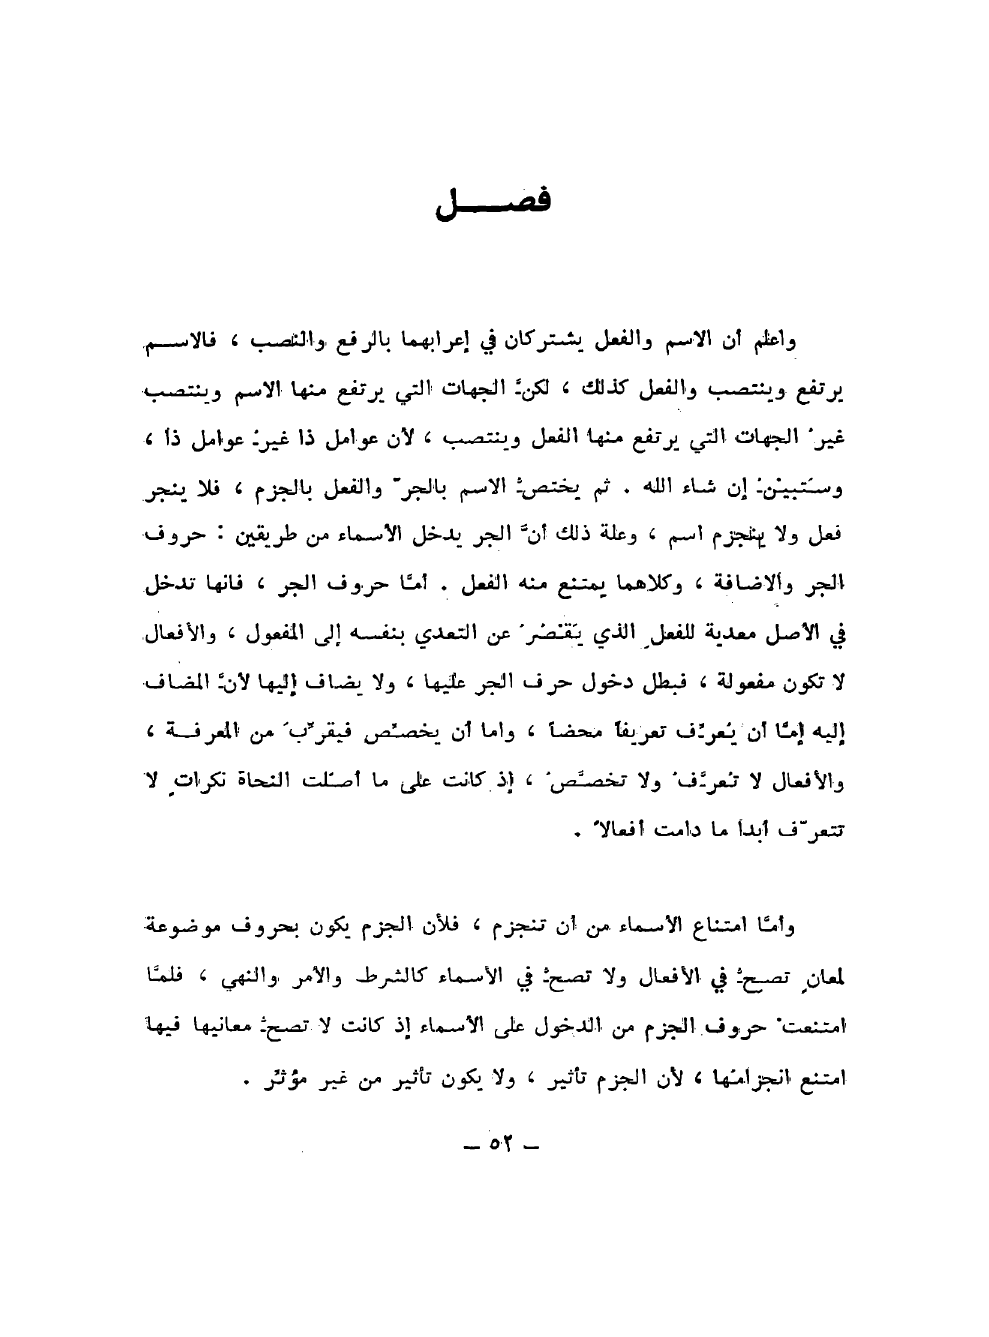 فصــــل
واعلم أن الاسم والفعل يشتركان في إعرابهما بالرفع والنصب ، فالاســم
يرتفع وينتصب والفعل كذلك ، لكنَّ الجهات التي يرتفع منها الاسم وينتصب
غيرُ الجهات التي يرتفع منها الفعل وينتصب ، لأن عوامل ذا غيرُ عوامل ذا ،
وستَبيْنُ إن شاء الله . ثم يختصُّ الاسم بالجرّ والفعل بالجزم ، فلا ينجر
فعل ولا ينجزم اسم ، وعلة ذلك أنَّ الجر يدخل الأسماء من طريقين : حروف
الجر والاضافة ، وكلاهما يمتنع منه الفعل . أمَّا حروف الجر ، فانها تدخل
في الأصل معدية للفعلِ الذي يَقْصُرُ عن التعدي بنفسه إلى المفعول ، والأفعال
لا تكون مفعولة ، فبطل دخول حرف الجر عليها ، ولا يضاف إليها لأنَّ المضاف
إليه إمَّا أن يُعرِّف تعريفاً محضاً ، واما أن يخصّص فيقرِّبَ من المعرفــة ،
والأفعال لا تُعرِّفُ ولا تخصِّصُ ، إذ كانت على ما أصّلت النحاة نكراتٍ لا
تتعرّف أبداً ما دامت أفعالاً .
وأمَّا امتناع الأسماء من أن تنجزم ، فلأن الجزم يكون بحروف موضوعة
لمعانٍ تصحُّ في الأفعال ولا تصحُّ في الأسماء كالشرط والأمر والنهي ، فلمَّا
امتنعتْ حروف الجزم من الدخول على الأسماء إذ كانت لا تصحُّ معانيها فيها
امتنع انجزامُها ، لأن الجزم تأثير ، ولا يكون تأثير من غير مؤثّر .
– ٥٢ –